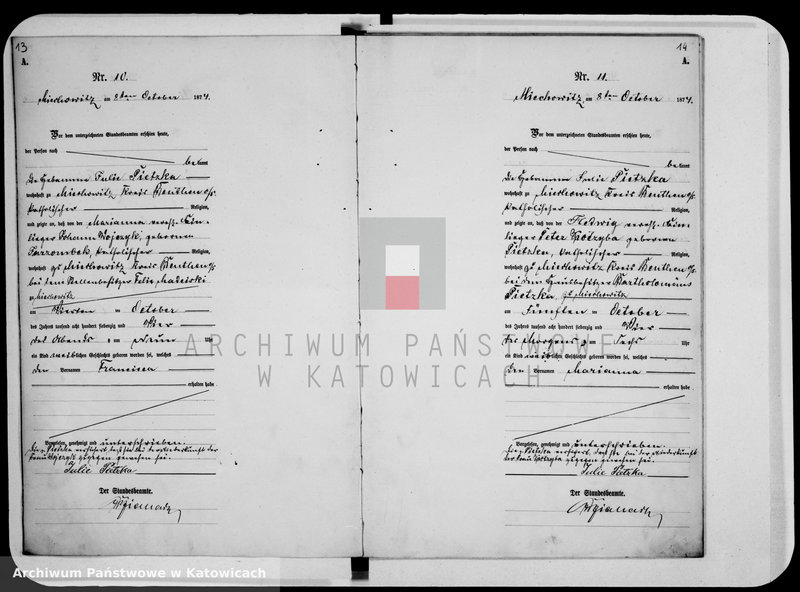 13
A.
Nr. 10.
Miechowitz am 8ten October 1874.
Vor dem unterzeichneten Standesbeamten erschien heute,
der Person nach
bekannt
Die Hebamme Julie Pietzka
wohnhaft zu Miechowitz Kreis Beuthen o/s.
katholischer Religion,
und zeigte an, daß von der Marianna
Johann Wojczyk, geborenen
katholischer Religion,
wohnhaft zu Miechowitz Kreis Beuthen o/s
bei dem Stellenbesitzer Felix
zu Miechowitz
am Vierten October
des Jahres tausend acht hundert siebenzig und Vier
des Abends um Neun Uhr
ein Kind weiblichen Geschlechts geboren worden sei, welches
den Vornamen Francisca
erhalten habe
Vorgelesen, genehmigt und unterschrieben.
Die Pietzka versichert, daß sie bei der Niederkunft der
Frau Wojczyk zugegen gewesen sei.
Julie Pietzka
Der Standesbeamte.
14
A.
Nr. 11.
Miechowitz am 8ten October 1874.
Vor dem unterzeichneten Standesbeamten erschien heute,
der Person nach
bekannt
Die Hebamme Julie Pietzka
wohnhaft zu Miechowitz Kreis Beuthen o/s.
katholischer Religion,
und zeigte an, daß von der Hedwig
Peter Kotzyba geborenen
Pietzka, katholischer Religion,
wohnhaft zu Miechowitz Kreis Beuthen o/s
bei dem Hausbesitzer Bartholomäus
Pietzka, zu Miechowitz
am Fünften October
des Jahres tausend acht hundert siebenzig und Vier
des Morgens um Sechs Uhr
ein Kind weiblichen Geschlechts geboren worden sei, welches
den Vornamen Marianna
erhalten habe
Vorgelesen, genehmigt und unterschrieben.
Die Pietzka versichert, daß sie bei der Niederkunft
der Frau Kotzyba zugegen gewesen sei.
Julie Pietzka
Der Standesbeamte.
ARCHIWUM PAŃSTWOWE
W KATOWICACH
Archiwum Państwowe w Katowicach